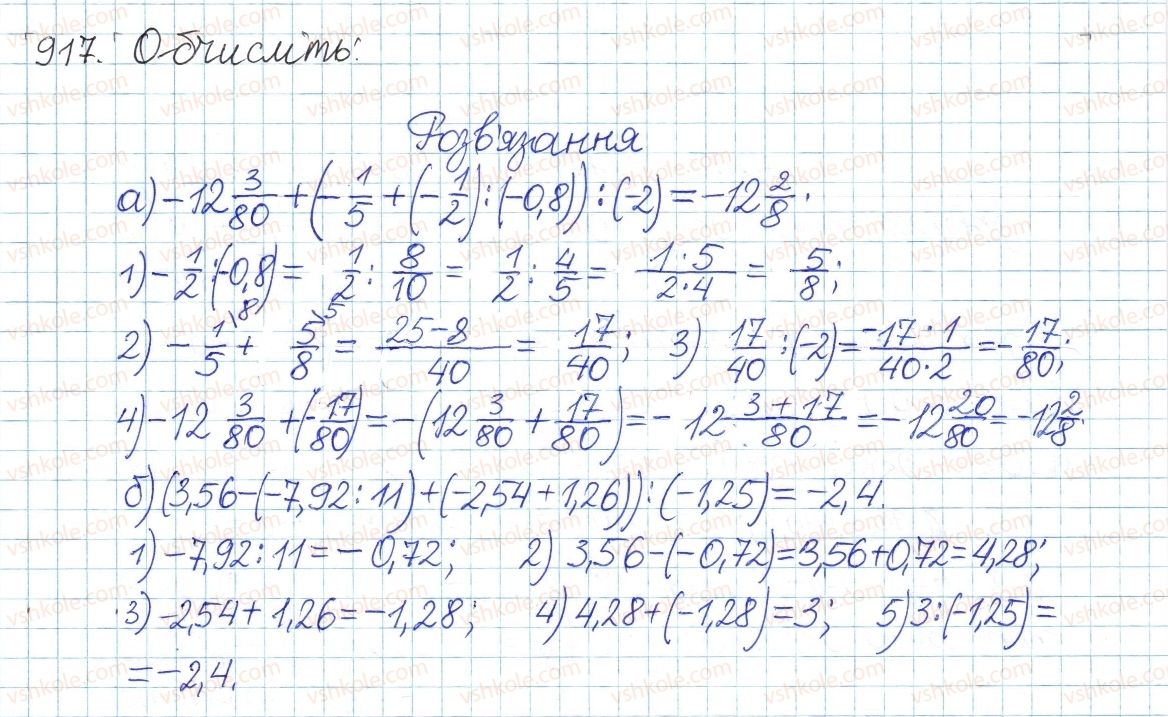 917. Обчисліть:
Розв'язання
а) -12 3/80 + (-1/5 + (-1/2) : (-0,8)) : (-2) = -12 2/8.
1) -1/2 : (-0,8) = 1/2 : 8/10 = 1/2 : 4/5 = 1·5/2·4 = 5/8;
2) -1/5 \8 + 5/8 \5 = 25-8/40 = 17/40; 3) 17/40 : (-2) = -17·1/40·2 = -17/80;
4) -12 3/80 + (-17/80) = -(12 3/80 + 17/80) = -12 3+17/80 = -12 20/80 = -12 2/8.
б) (3,56-(-7,92:11)+(-2,54+1,26)):(-1,25)=-2,4.
1) -7,92:11=-0,72; 2) 3,56-(-0,72)=3,56+0,72=4,28;
3) -2,54+1,26=-1,28; 4) 4,28+(-1,28)=3; 5) 3:(-1,25)=
=-2,4.